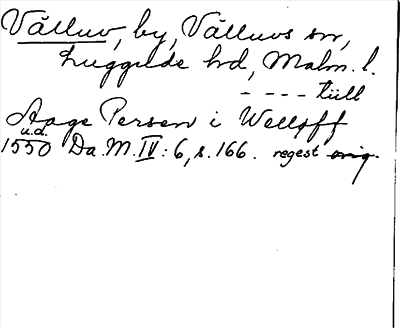 Välluv, by, Välluvs sn,
Luggude hd, Malm. l.
- - - - till
Aage Persen i Welløff
u.d.
1550 Da. M. IV: 6, s. 166. regest orig.